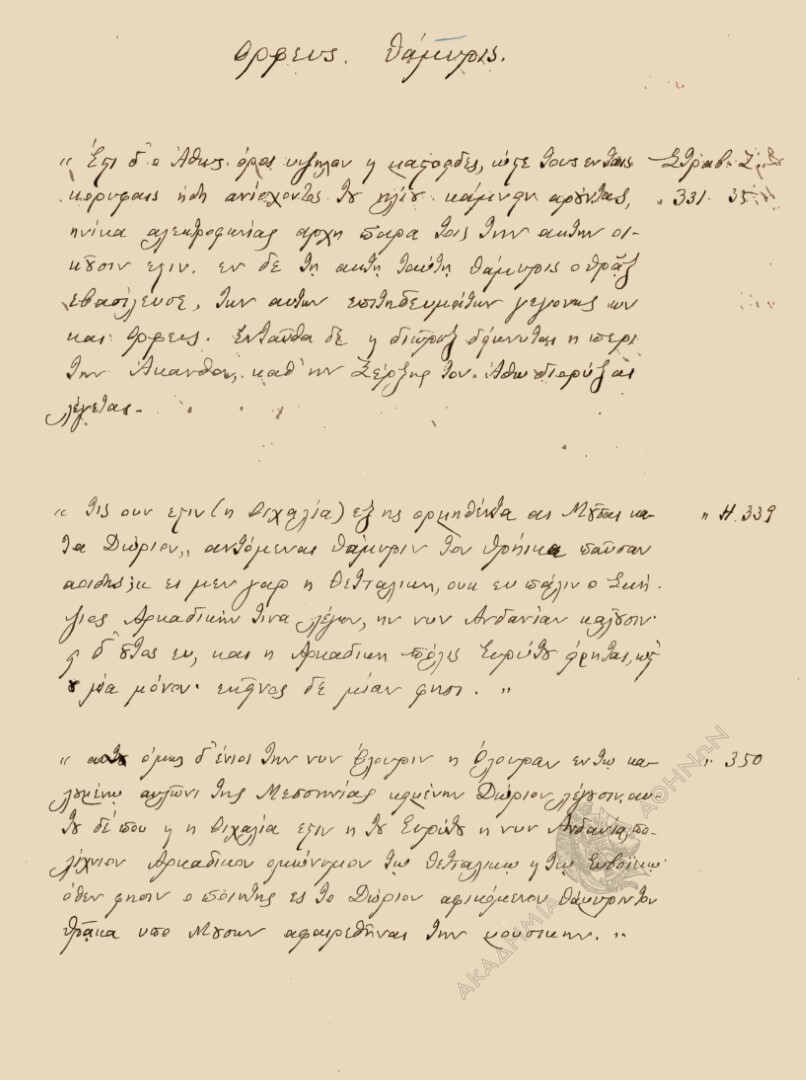 Ορφευς. Θάμυρις.
„ Έςι δ' ο Άθως όρος υψηλον η μαςοειδες, ώςε τους εν ταις Στραβ. Ζ.
κορυφαις ήδη ανίσχοντος τȣ ηλίȣ κάμνειν αρȣντας, „ 331. 35
ηνίκα αλεκτροφωνίας αρχη παρα τοις την ακτην οι-
κȣσιν εςιν. εν δε τη ακτη ταύτη Θάμυρις ο Θρᾷξ
εβασίλευσε, των αυτων επιτηδευμάτων γεγονως ων
και Ορφευς. Ενταῦθα δε η διῶρυξ δείκνυται η περι
την Άκανθον, καθ' ην Ξέρξης τον Άθω διορύξαι
λέγεται.
„ τις ουν εςιν (η Οιχαλία) εξ ης ορμηθέντα αι Μȣσαι κα-
τα Δώριον,, αντόμεναι Θάμυριν τον Θρήικα παῦσαν „ Η. 339
αοιδης; κ ει μεν γαρ η Θετταλικη, ουκ ευ πάλιν ο Σκή-
ψιος Αρκαδικήν τινα λέγων, ην νυν Ανδανίαν καλȣσιν·
ει δ' ȣτος ευ, και η Αρκαδικη πόλις Ευρύτȣ είρηται, ωςε
ȣ μία μόνον· εκεῖνος δε μίαν φησι. „
„ αυτȣ όμως δ' ένιοι την νυν Όλουριν η Όλουραν εν τω κα- „ 350
λȣμένω αυλῶνι της Μεσσηνίας κειμένην Δώριον λέγȣσιν. αυ-
τȣ δέ που η η Οιχαλία εςιν η τȣ Ευρύτȣ η νυν Ανδανία, πο-
λίχνιον Αρκαδικον ομώνυμον τω Θετταλικω η τω Ευβοϊκω·
όθεν φησιν ο ποιητης ες το Δώριον αφικόμενον Θάμυριν τον
Θρᾷκα υπο Μȣσων αφαιρεθῆναι την μουσικην. „
ΑΚΑΔΗΜΙΑ ΑΘΗΝΩΝ